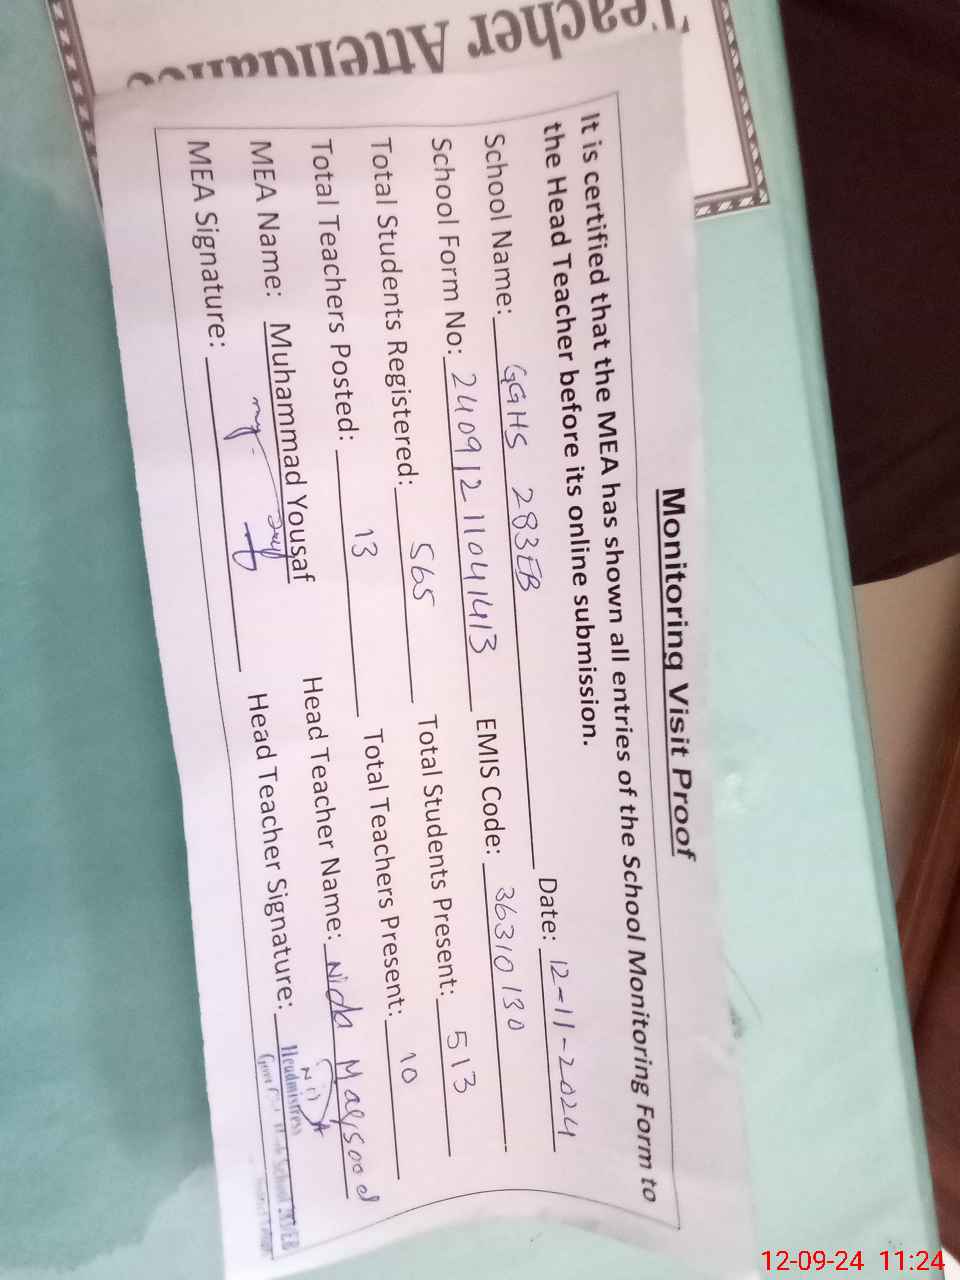 Teacher Attendance
Monitoring Visit Proof
It is certified that the MEA has shown all entries of the School Monitoring Form to
the Head Teacher before its online submission.
School Name: GGHS 283EB Date: 12-11-2024
School Form No: 24091211041413 EMIS Code: 36310130
Total Students Registered: 565 Total Students Present: 513
Total Teachers Posted: 13 Total Teachers Present: 10
MEA Name: Muhammad Yousaf Head Teacher Name: Nida Maqsood
MEA Signature: Head Teacher Signature:
Headmistress
12-09-24 11:24